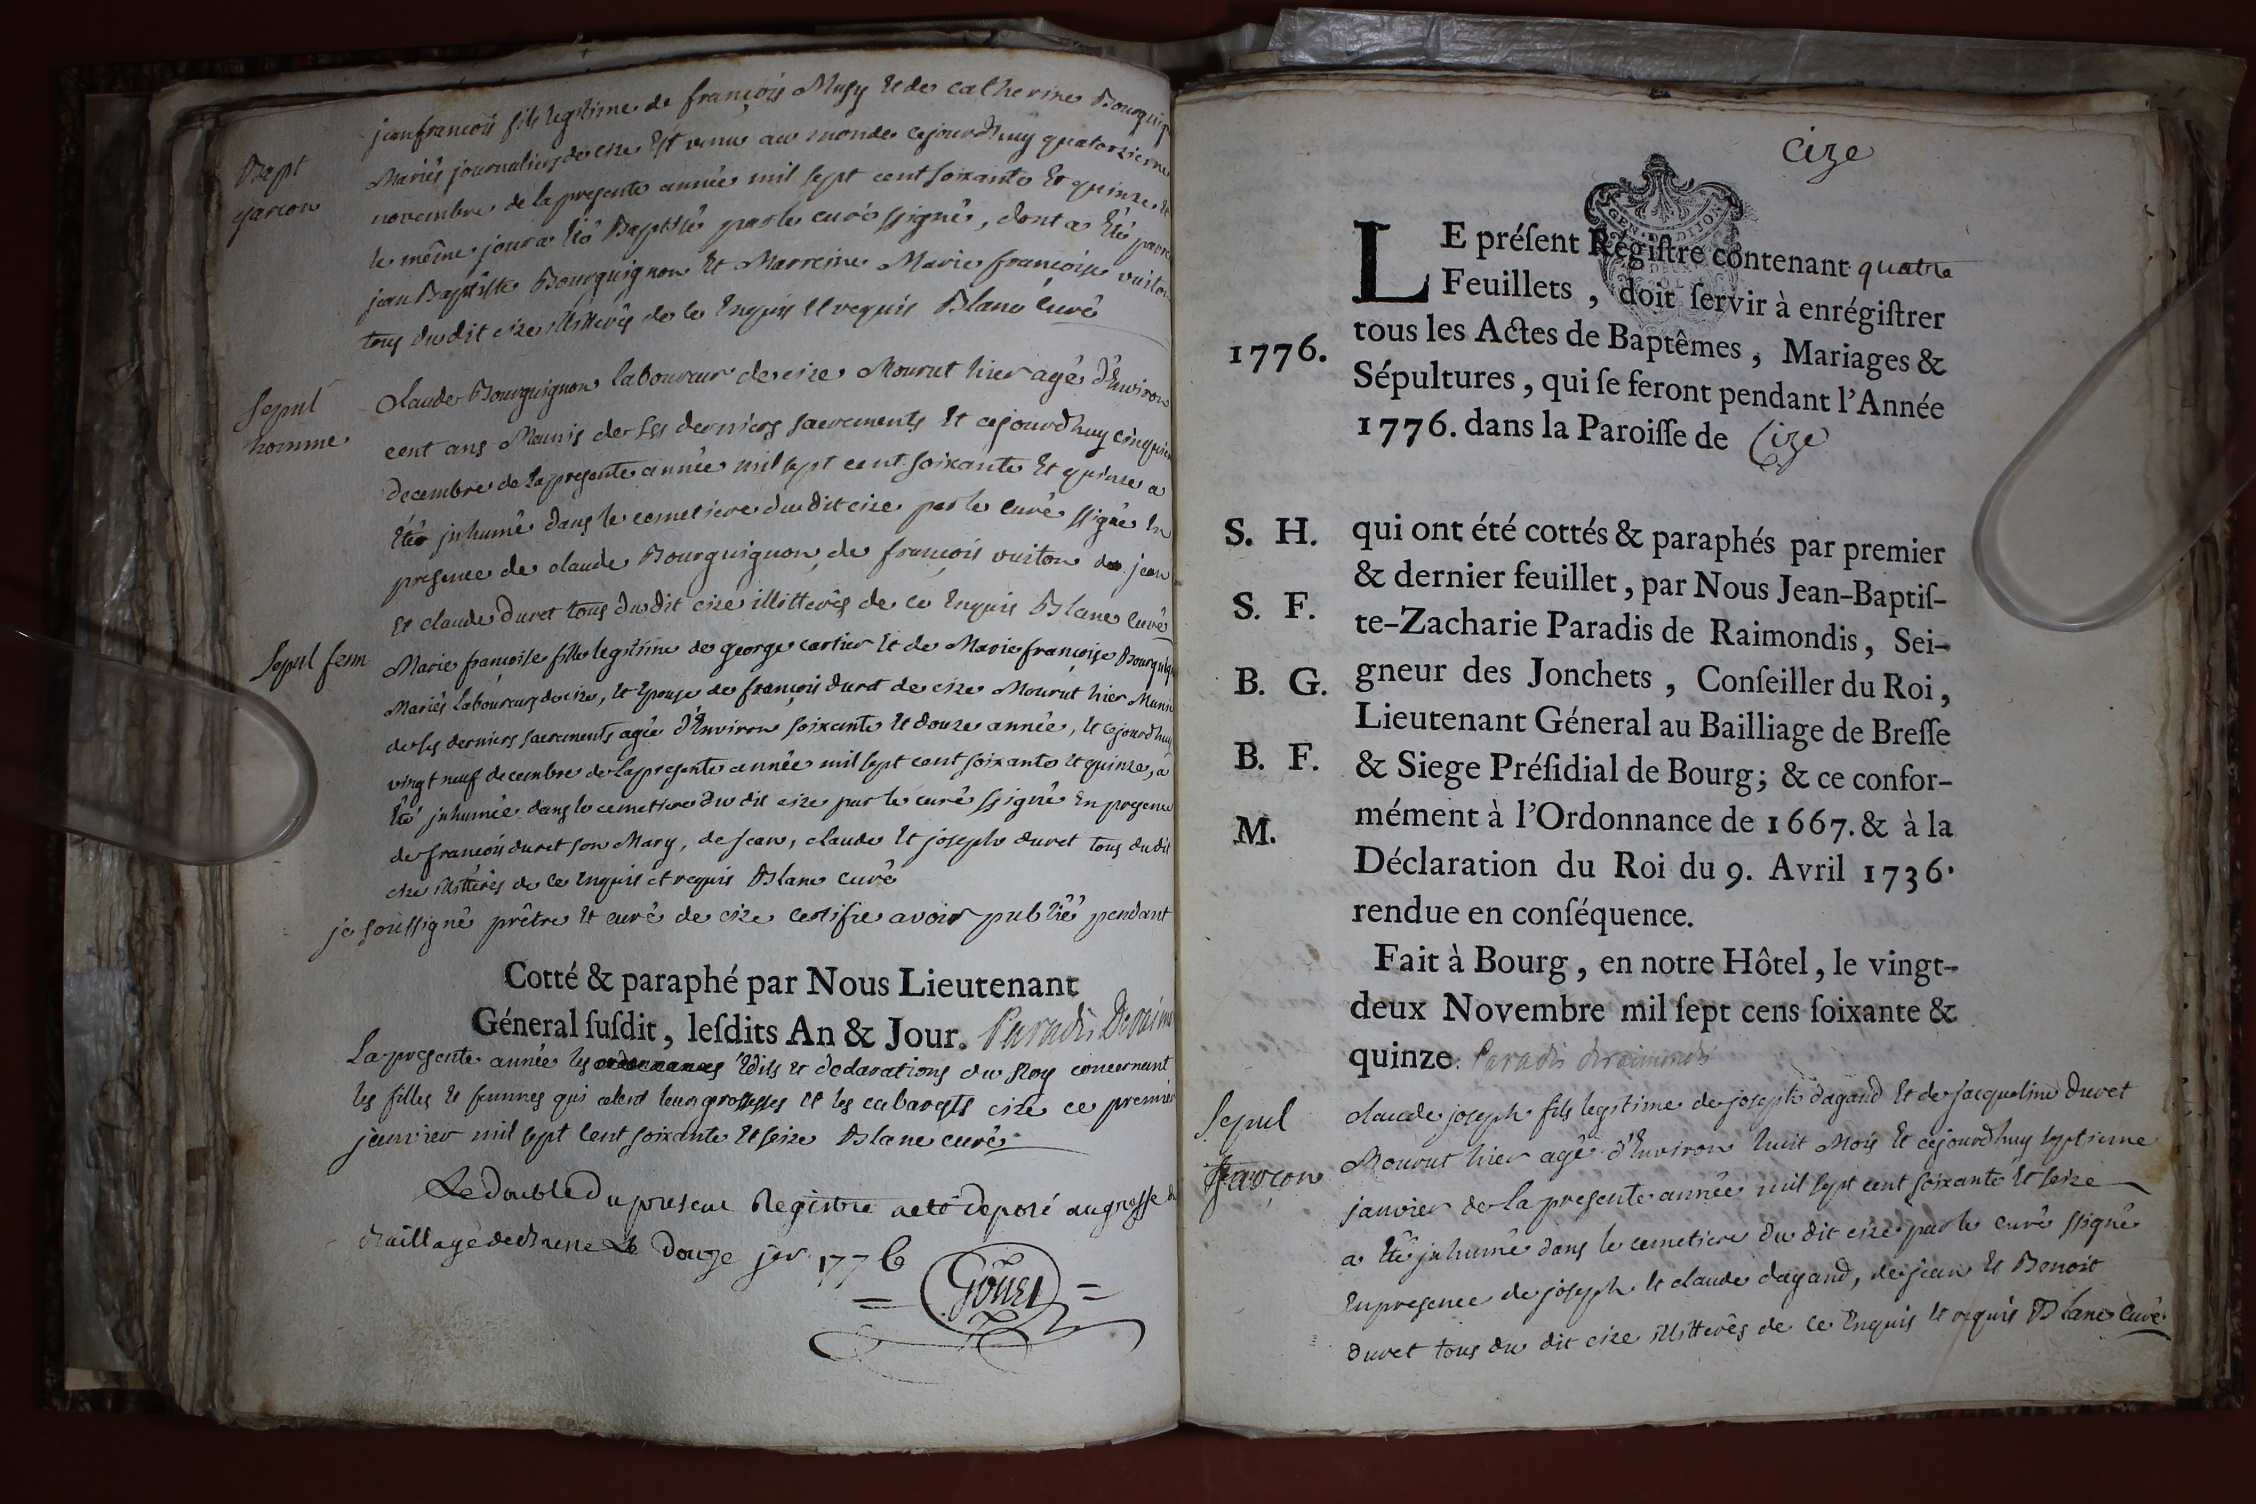 Bapt
garcon
jean francois fils legitime de françois Musy et de catherine Bourguig
Mariés journaliers de cize est venu au monde cejourdhuy quatorzieme
novembre de la presente année mil sept cent soixante et quinze et
le même jour a été Baptisé par le curé ssigné, dont a été parr
jean Baptiste Bourguignon et Marreine Marie françoise vuiton
tous du dit cize illitterés de ce enquis et requis Blanc curé
Sepul
homme
claude Bourguignon laboureur de cize Mourut hier agé d'Environ
cent ans Munis de ses derniers sacrements et cejourdhuy cinquie
decembre de la presente année mil sept cent soixante et quinze a
été inhumé dans le cemetiere du dit cize par le curé ssigné en
presence de claude Bourguignon, de françois vuiton de jean
et claude duret tous du dit cize illitterés de ce enquis Blanc curé
Sepul fem
Marie françoise fille legitime de george cartier et de Marie françoise Bourguig
Mariés Laboureurs de cize, et epouse de françois duret de cize Mourut hier Munie
de ses derniers sacrements agée d'Environ soixante et douze année, et cejourdhuy
vingt neuf decembre de la presente année mil sept cent soixante et quinze, a
été inhumée dans le cemetiere du dit cize par le curé ssigné en presence
de francois duret son Mary, de jean, claude et joseph duret tous du dit
cize illitterés de ce enquis et requis Blanc curé
je soussigné prêtre et curé de cize certifie avoir publié pendant
Cotté & paraphé par Nous Lieutenant
Géneral ſuſdit, leſdits An & Jour. Paradis Deraimo
La presente année les edits et declarations du Roy concernant
les filles et femmes qui celent leurs grossesses et les cabarets cize ce premier
janvier mil sept cent soixante et seize Blanc curé
Le double du present Registre a eté deposé au greffe du
Bailliage de Bresse Le douze jer 1776
Gouët
Cize
LE préſent Régiſtre contenant quatre
Feuillets, doit ſervir à enrégiſtrer
tous les Actes de Baptêmes, Mariages &
1776.
Sépultures, qui ſe feront pendant l'Année
1776. dans la Paroiſſe de Cize
S. H.
qui ont été cottés & paraphés par premier
& dernier feuillet, par Nous Jean-Baptiſ-
S. F.
te-Zacharie Paradis de Raimondis, Sei-
B. G.
gneur des Jonchets, Conſeiller du Roi,
Lieutenant Géneral au Bailliage de Breſſe
B. F.
& Siege Préſidial de Bourg; & ce confor-
M.
mément à l'Ordonnance de 1667. & à la
Déclaration du Roi du 9. Avril 1736.
rendue en conſéquence.
Fait à Bourg, en notre Hôtel, le vingt-
deux Novembre mil ſept cens ſoixante &
quinze. Paradis deraimondis
Sepul
garçon
claude joseph fils legitime de joseph dagand et de jacqueline duret
Mourut hier agé d'Environ huit Mois et cejourdhuy septieme
janvier de la presente année mil sept cent soixante et seize
a été inhumé dans le cemetiere du dit cize par le curé ssigné
En presence de joseph et claude dagand, de jean et Benoit
duret tous du dit cize illitterés de ce enquis et requis Blanc curé